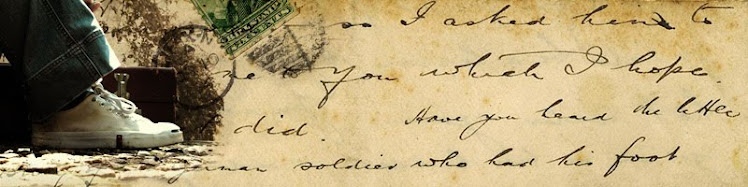 so I asked him to
me to you which I hope.
did. Have you heard the letter
German soldier who had his foot